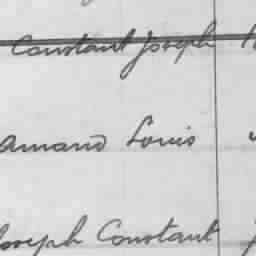 Constant Joseph
Amand Louis
Joseph Constant